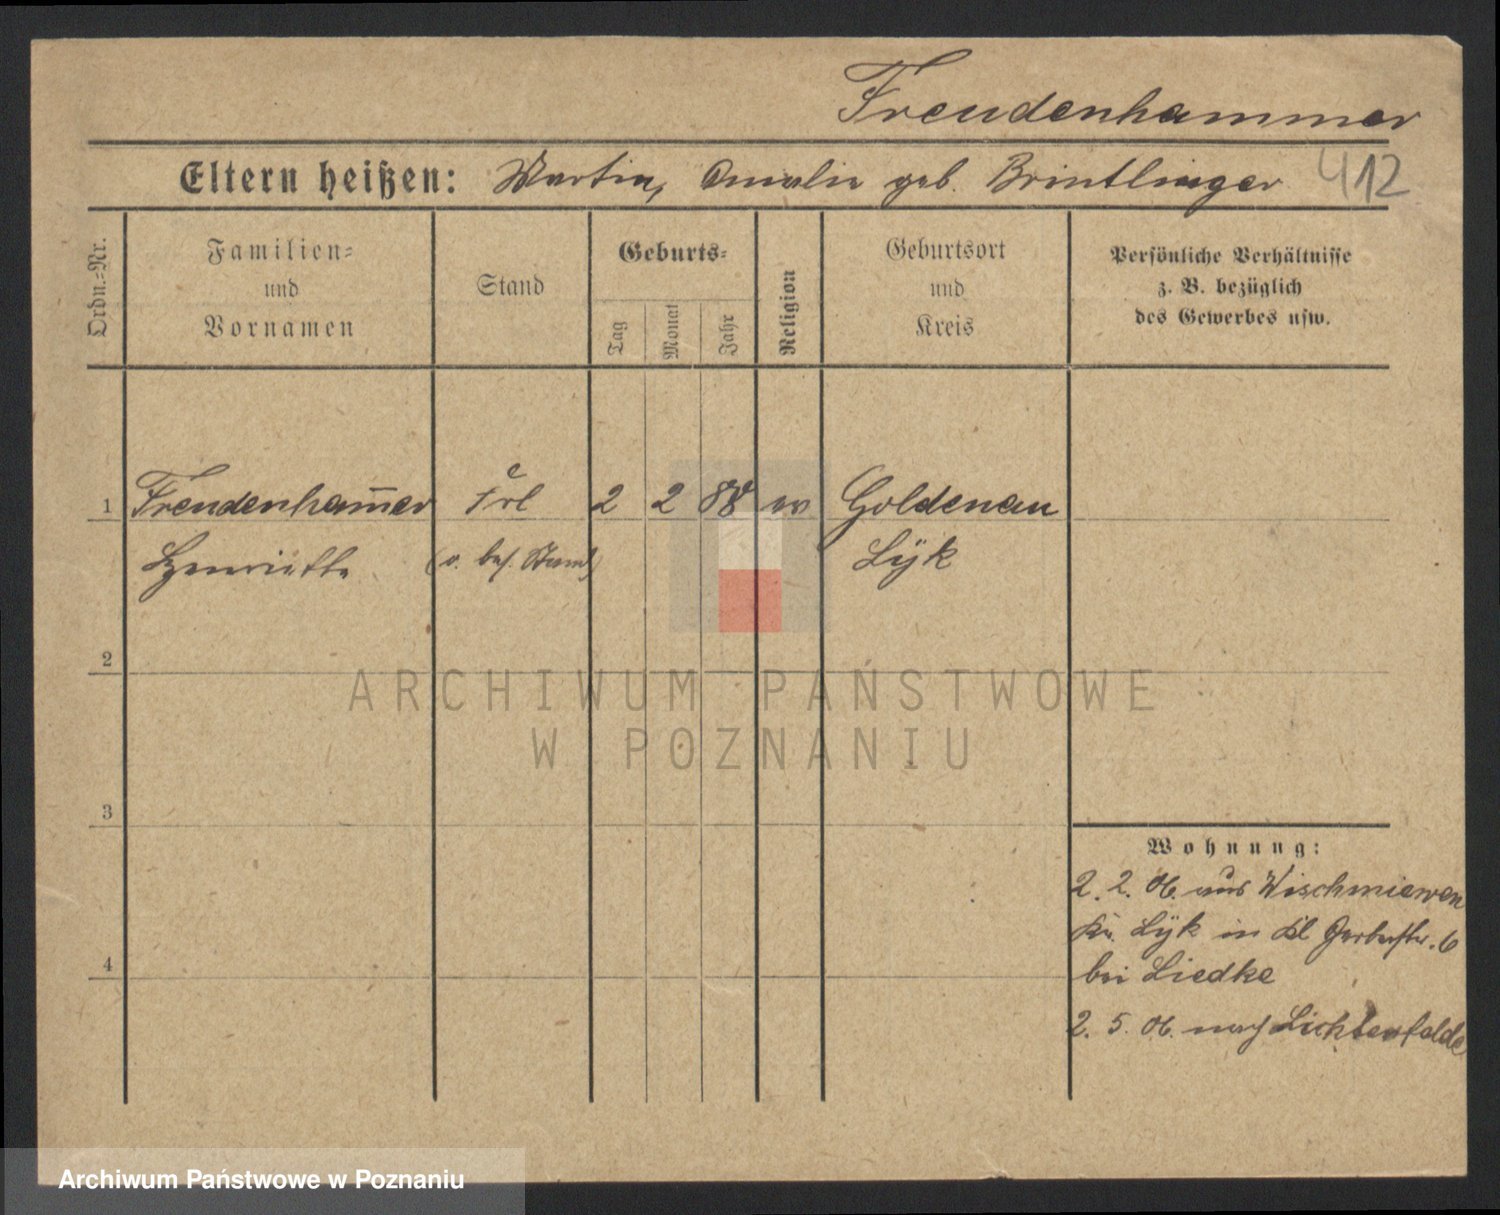 Freudenhammer
Eltern heißen: Martin, Amalie geb. Brintlinger 412
Ordn.-Nr.
Familien-
und
Vornamen
Stand
Geburts-
Tag
Monat
Jahr
Religion
Geburtsort
und
Kreis
Persönliche Verhältnisse
z. B. bezüglich
des Gewerbes usw.
1 Freudenham̅er Frl 2 2 88 ev Goldenau
Henriette (o. bes. Stand) Lÿk
2
ARCHIWUM PAŃSTWOWE
W POZNANIU
3
Wohnung:
2. 2. 06. aus Wischniewen
Kr. Lÿk in Kl Gerberstr. 6
4
bei Liedke
2. 5. 06. nach Lichterfelde
Archiwum Państwowe w Poznaniu